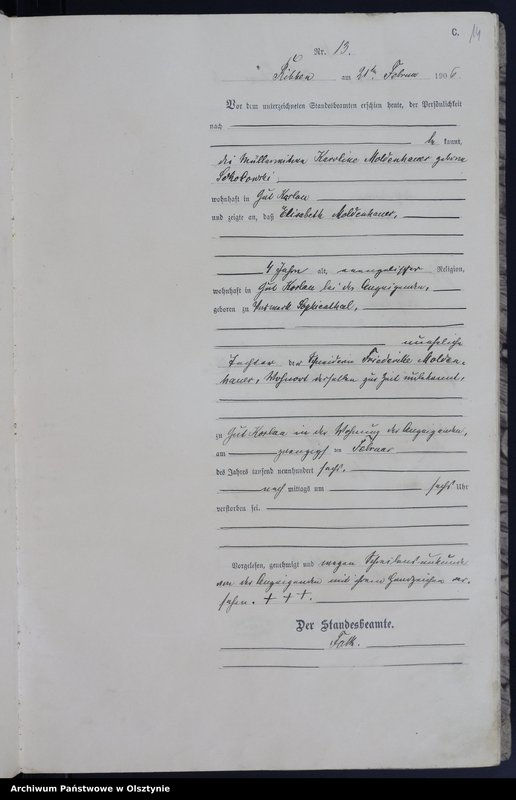 C. 14
Nr. 13.
Ribben am 21ten Februar 1906.
Vor dem unterzeichneten Standesbeamten erschien heute, der Persönlichkeit
nach
be kannt,
die Müllerwitwe Karoline Moldenhauer geborne
Sokolowski,
wohnhaft in Gut Koslau
und zeigte an, daß Elisabeth Moldenhauer,
4 Jahre alt, evangelischer Religion,
wohnhaft in Gut Koslau bei der Anzeigenden,
geboren zu Vorwerk Sophienthal,
uneheliche
Tochter der Schneiderin Friederike Molden-
hauer, Wohnort derselben zur Zeit unbekannt,
zu Gut Koslau in der Wohnung der Anzeigenden,
am zwanzigsten Februar
des Jahres tausend neunhundert sechs,
nach mittags um sechs Uhr
verstorben sei.
Vorgelesen, genehmigt und wegen Schreibensunkunde
von der Anzeigenden mit ihrem Handzeichen ver-
sehen. + + +.
Der Standesbeamte.
Falk.
Archiwum Państwowe w Olsztynie